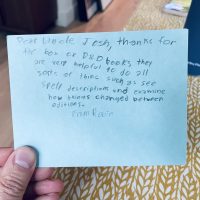 Dear Uncle Josh, thanks for
the box of D&D books, they
are very helpful to do all
sorts of things such as see
spell descriptions and examine
how things changed between
editions.
From Robin